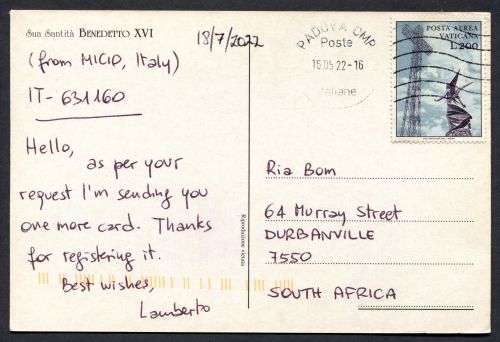 Sua Santità BENEDETTO XVI
18/7/2022
(from MICIO, Italy)
IT-631160
Hello,
as per your
request I'm sending you
one more card. Thanks
for registering it.
Best wishes,
Lamberto
PADOVA CMP
Poste
15.05 22-16
Italiane
POSTA AEREA
VATICANA
L.200
Ria Bom
64 Murray Street
DURBANVILLE
7550
SOUTH AFRICA
Riproduzione vietata